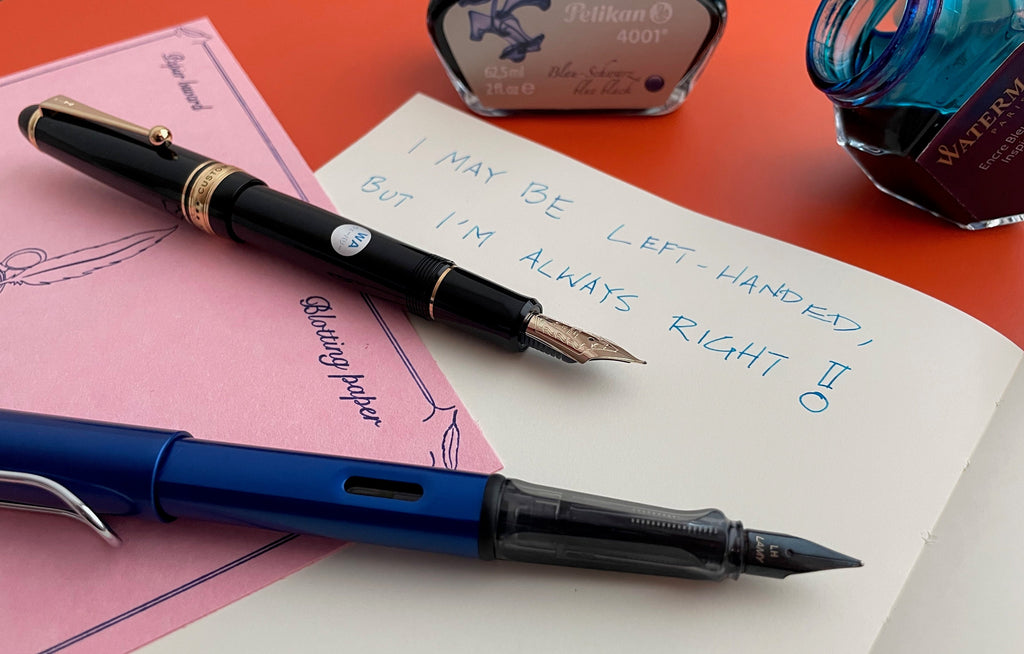 Pelikan
4001®
62,5 ml
2 fl oz ℮
Blau-Schwarz
blue black
WATERM
PARI
Encre Ble
Inspi
I MAY BE LEFT-HANDED,
BUT I'M ALWAYS RIGHT!
CUSTO
WA
Blotting paper
LH
LAMY